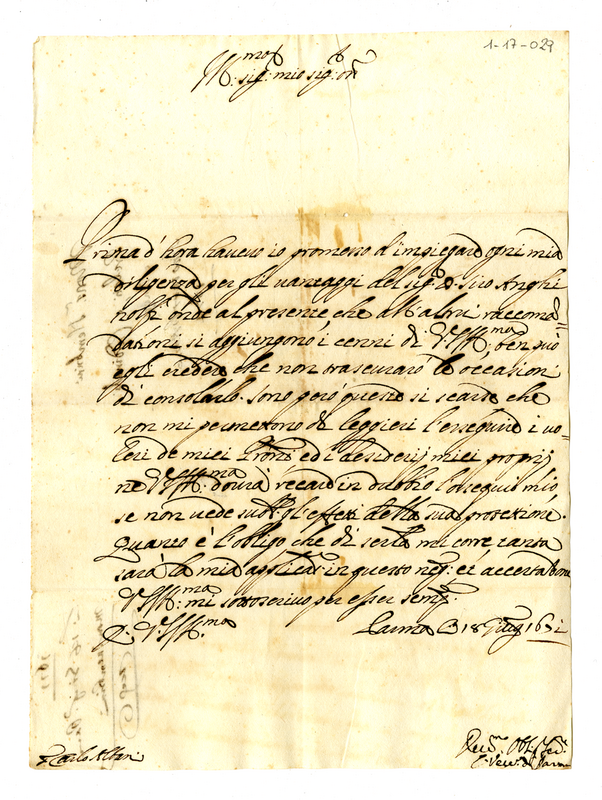 1-17-029
Ill.mo sig.r mio sig.r oss.
Prima d'hora havevo io promesso d'impiegare ogni mia
diligenza per gli vantaggi del sig.r D. Siro Anghi
nolfi onde al presente, che all'altrui raccoma(n)=
dationi si aggiungono i cenni di V.S. Ill.ma, ben può
egli credere che non trascurarò le occasioni
di consolarlo. Sono però queste si scarse che
non mi permettono di leggieri l'esseguire i vo=
leri de miei Proni ed i desiderij miei proprij
ne V.S. Ill.ma dovrà recare in dubbio l'ossequio mio,
se non vede subito gl'effetti della sua protezione.
Quanto è l'obligo che di servirla mi corre tanta
sarà la mia applicat. in questo neg.o et accertandone
V.S. Ill.ma mi sottoscrivo per esser semp.
D. V.S. Ill.ma
Parma 18 Giug. 1651
Carlo
Vesc. di Parma